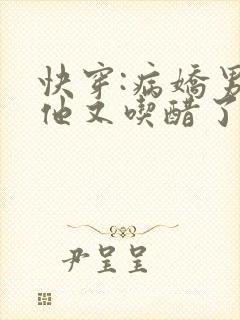 快穿:病嬌男
他又喫醋了
尹呈呈